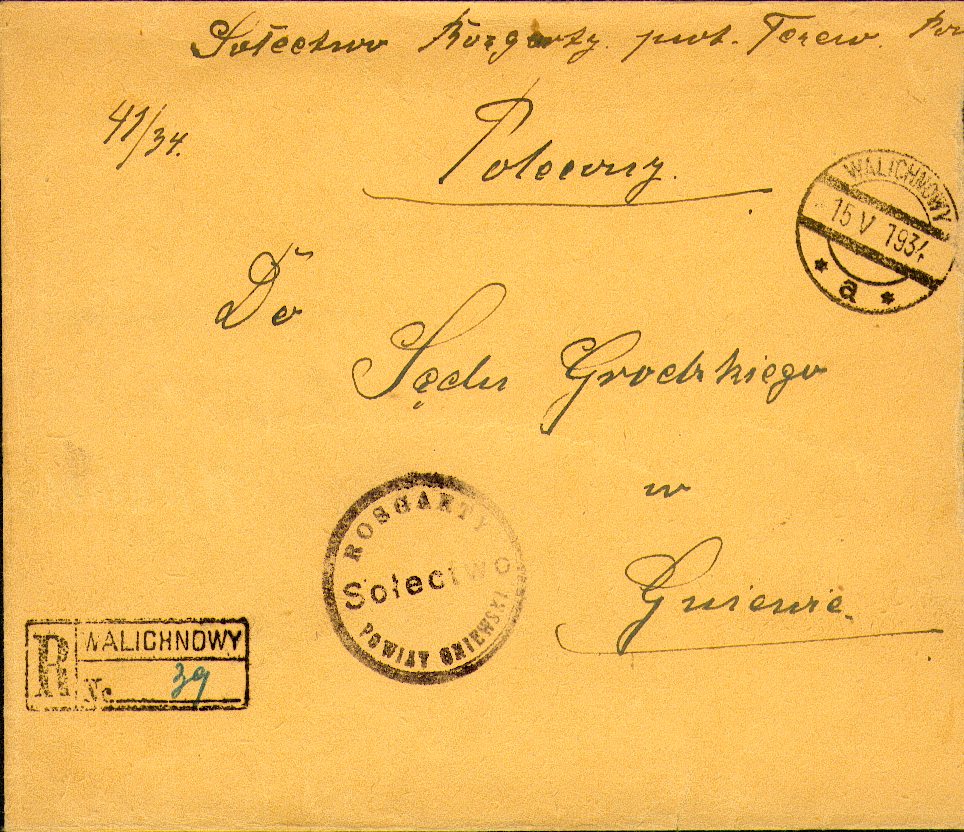 Sołectwo Rozgarty pow. Tczew.
41/34.
Polecony.
WALICHNOWY
15 V 1934
* a *
Do
Sądu Grodzkiego
w
Gniewie
ROSGARTY
Sołectwo
POWIAT GNIEWSKI
R WALICHNOWY
Nr. 39